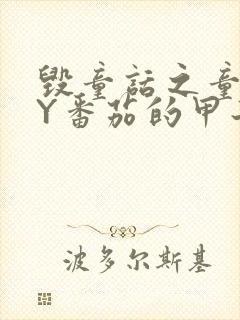 毁童话之童
Y番茄的甲
波多尔斯基